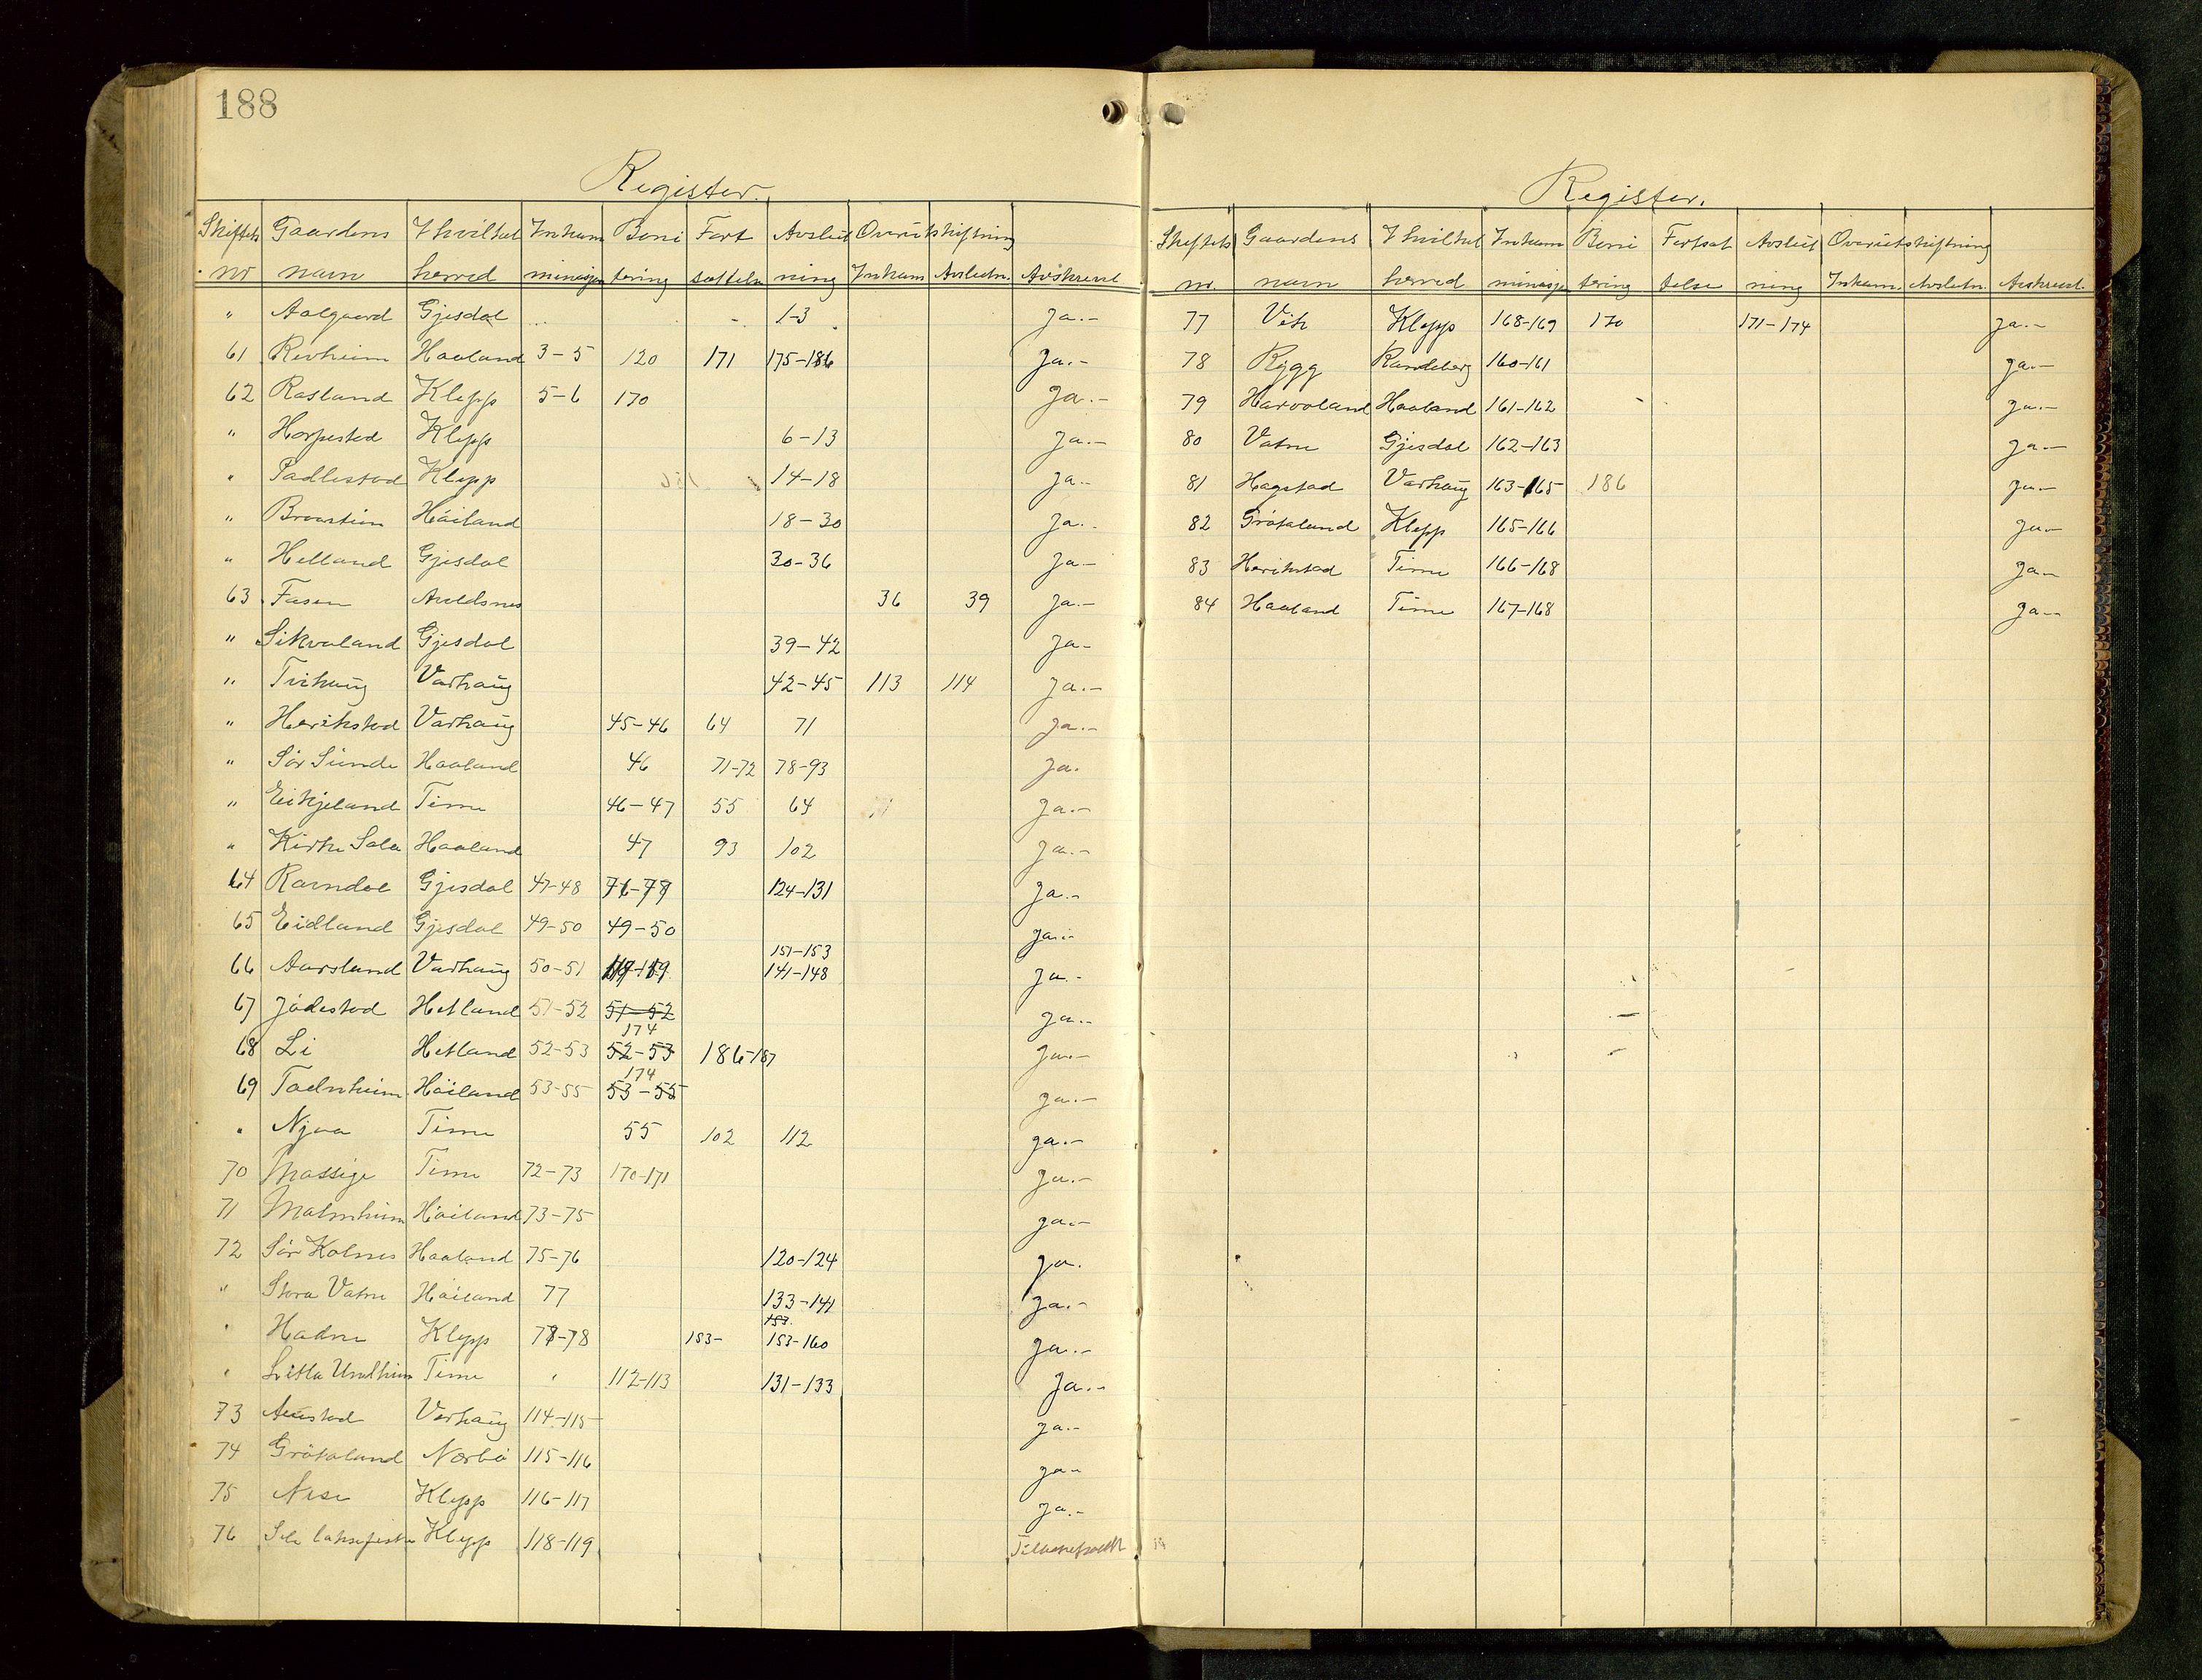 188
Register.
Skiftets Gaardens I hvilket Inkam Boni Fort Avslut Overutskiftning
nr navn herred minasjon tering settelse ning Inkam Avslutn. Avskrevet
" Aalgaard Gjesdal 1-3 ja.-
61 Revheim Haaland 3-5 120 171 175-186 ja.-
62 Rasland Klepp 5-6 170 ja.-
" Horpestad Klepp 6-13 ja.-
" Tadlestad Klepp 14-18 ja.-
" Broastein Håiland 18-30 ja.-
" Helland Gjesdal 30-36 ja-
63 Fasen Auldsnes 36 39 ja.-
" Sikvaland Gjesdal 39-42 ja-
" Tvihaug Varhaug 42-45 113 114 ja.-
" Herikstad Varhaug 45-46 64 71 ja.-
" Sør Sunde Haaland 46 71-72 78-93 ja.
" Eikjeland Time 46-47 55 64 ja.-
" Kirke Sola Haaland 47 93 102 ja.-
64 Ravndal Gjesdal 47-48 76-77 124-131 ja.-
65 Eidland Gjesdal 49-50 49-50 ja.-
151-153
66 Aarsland Varhaug 50-51 141-148 ja.-
67 Jådestad Hetland 51-52 51-52 ja.-
174
68 Li Hetland 52-53 52-53 186-187 ja.-
174
69 Håiland 53-55 53-55 ja.-
" Njaa Time 55 102 112 ja.-
70 Mossige Time 72-73 170-171 ja.-
71 Malmheim Håiland 73-75 ja.-
72 Sør Kolnes Haaland 75-76 120-124 ja.
" Stora Vatne Håiland 77 133-141 ja.-
153
" Hadne Klepp 77-78 153- 153-160 ja.-
" Litla Undheim Time " 112-113 131-133 ja.-
73 Austad Varhaug 114-115 ja.-
74 Gråtaland Nærbø 115-116 ja-
75 Nese Klepp 116-117 ja.-
76 Sele laksefiske Klepp 118-119
Register.
Skiftets Gaardens I hvilket Inkam Boni Fortsat Avslut Overutskiftning
nr. navn herred minasjon tering telse ning Inkam. Avslutn. Avskrevet.
77 Vik Klepp 168-169 170 171-174 ja.-
78 Rygg Randeberg 160-161 ja.-
79 Harvaland Haaland 161-162 ja.-
80 Vatne Gjesdal 162-163 ja.-
81 Hagstad Varhaug 163-165 186 ja.-
82 Gråtaland Klepp 165-166 ja.-
83 Herikstad Time 166-168 ja.-
84 Haaland Time 167-168 ja.-